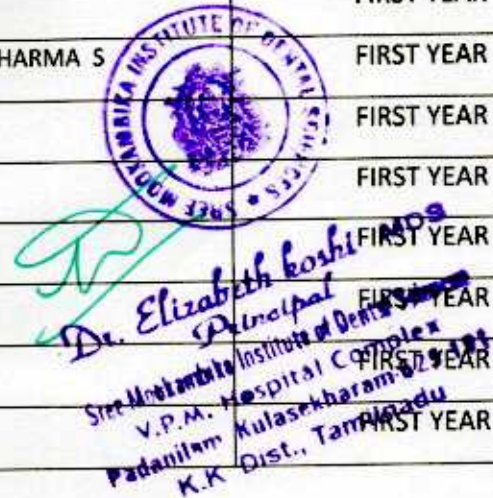 FIRST YEAR
HARMA S FIRST YEAR
FIRST YEAR
FIRST YEAR
FIRST YEAR
FIRST YEAR
FIRST YEAR
FIRST YEAR
SREE MOOKAMBIKA INSTITUTE OF DENTAL SCIENCES
Dr. Elizabeth koshi MDS
Principal
Sree Mookambika Institute of Dental
V.P.M. Hospital Complex
Padanilam Kulasekharam-629
K.K Dist., Tamilnadu